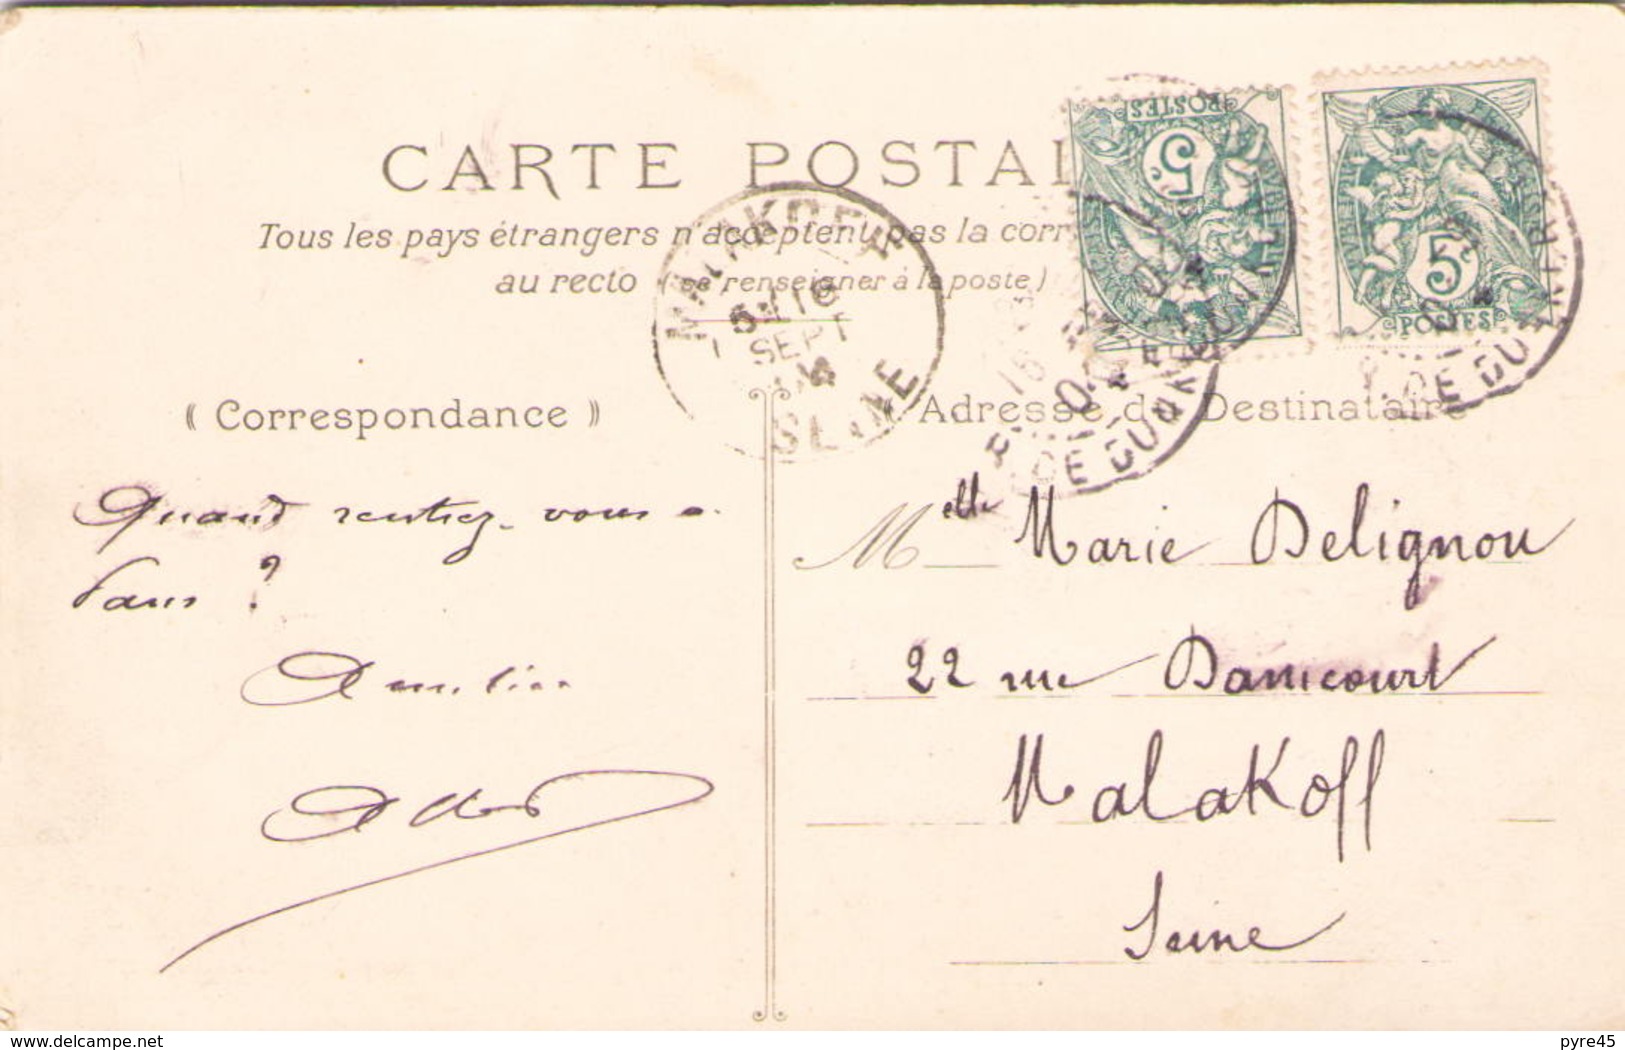 CARTE POSTAL
Tous les pays étrangers n'acceptent pas la corr
au recto (se renseigner à la poste)
POSTES
5c
5c
POSTES
MALAKOFF
SEPT
SEINE
DE DUNKERQUE
« Correspondance »
Adresse du Destinataire
Quand rentrez-vous à
Paris ?
Amitiés
Melle Marie Delignou
22 rue Danicourt
Malakoff
Seine
www.delcampe.net
pyre45